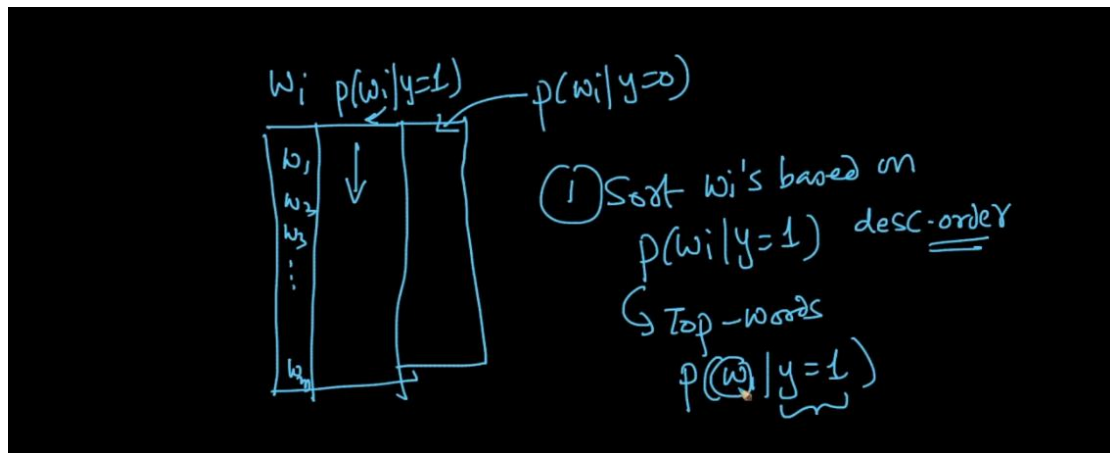 wi p(wi|y=1) p(wi|y=0)
w1
w2
w3
⋮
wn
① Sort wi's based on
p(wi|y=1) desc-order
Top-words
p(wi|y=1)